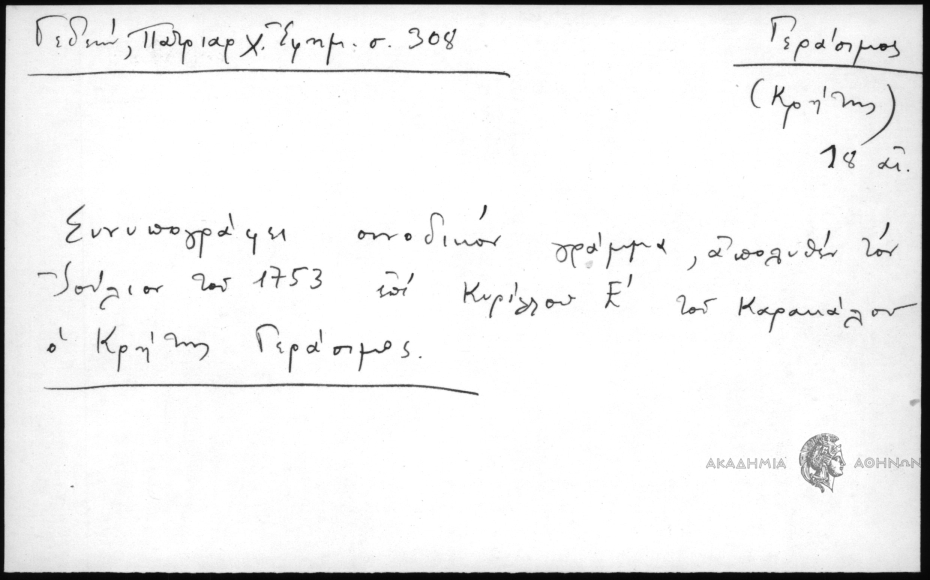 Γεδεών, Πατριαρχ. Ἐφημ. σ. 308
Γεράσιμος
(Κρήτης)
18 αἰ.
Συνυπογράφει συνοδικόν γράμμα, ἀπολυθέν τόν
Ἰούλιον τοῦ 1753 ἐπί Κυρίλλου Ε' τοῦ Καρακάλου
ὁ Κρήτης Γεράσιμος.
ΑΚΑΔΗΜΙΑ ΑΘΗΝΩΝ